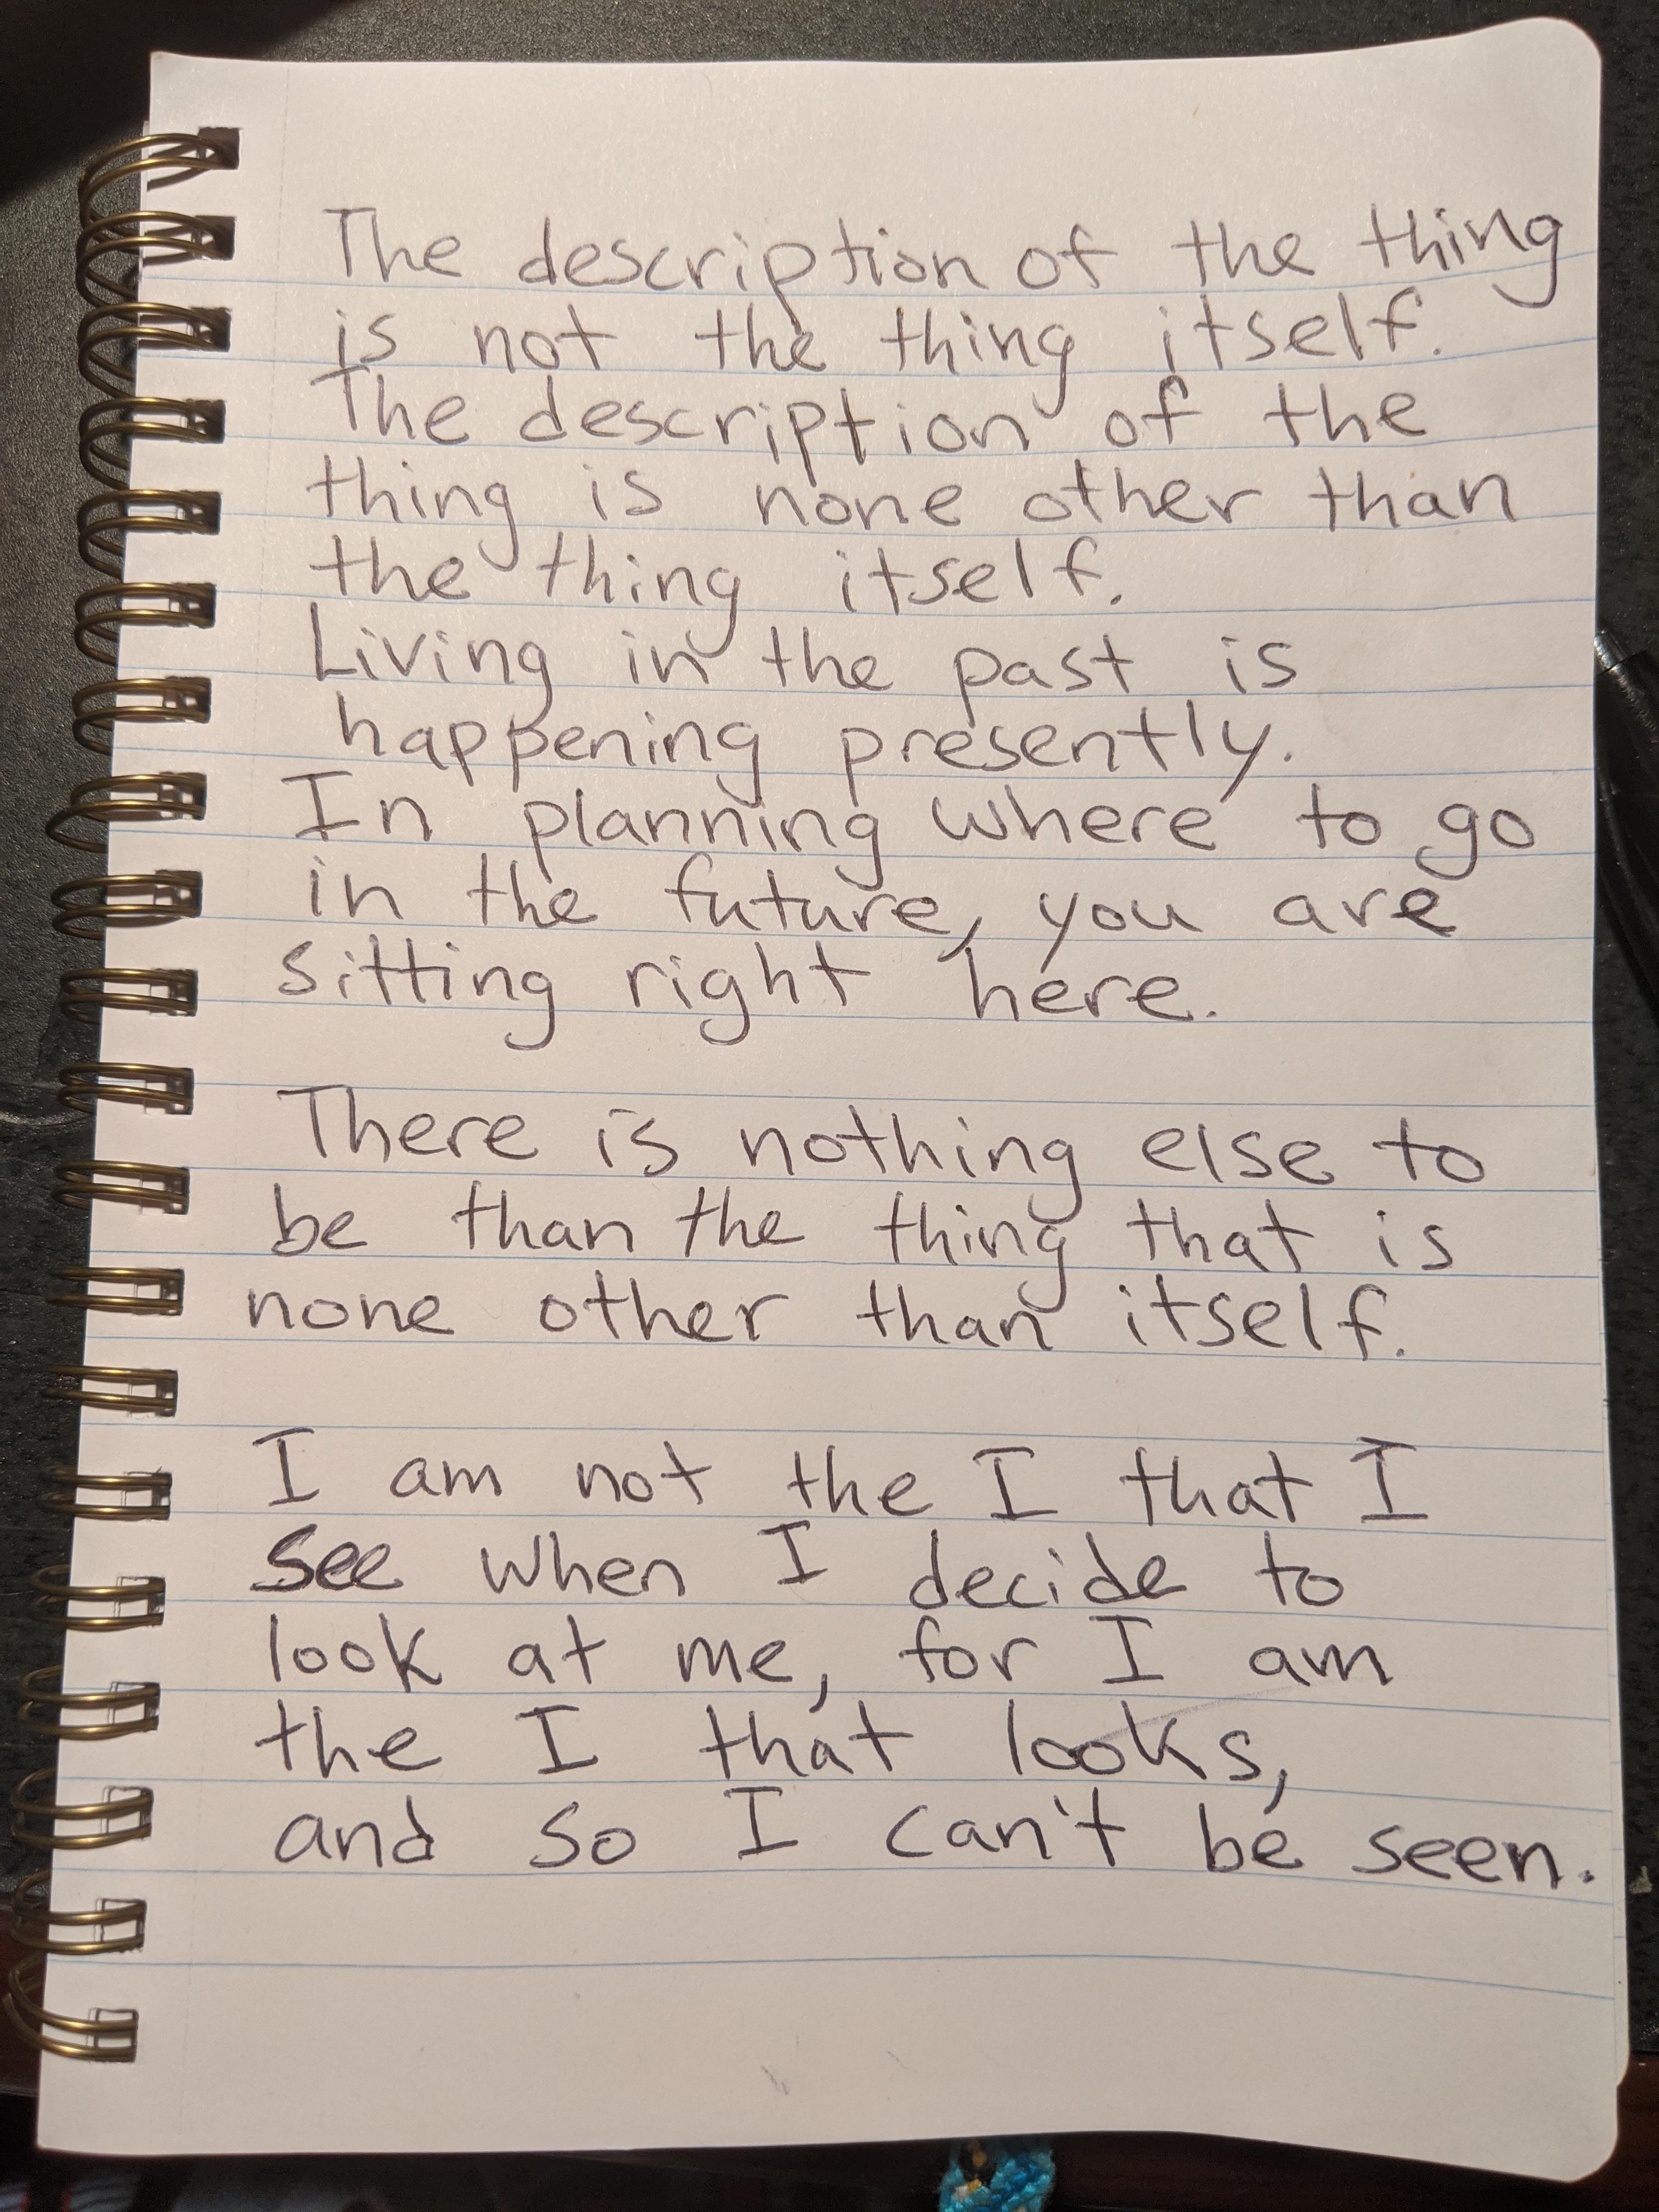 The description of the thing
is not the thing itself.
The description of the
thing is none other than
the thing itself.
Living in the past is
happening presently.
In planning where to go
in the future, you are
sitting right here.
There is nothing else to
be than the thing that is
none other than itself.
I am not the I that I
see when I decide to
look at me, for I am
the I that looks,
and so I can't be seen.